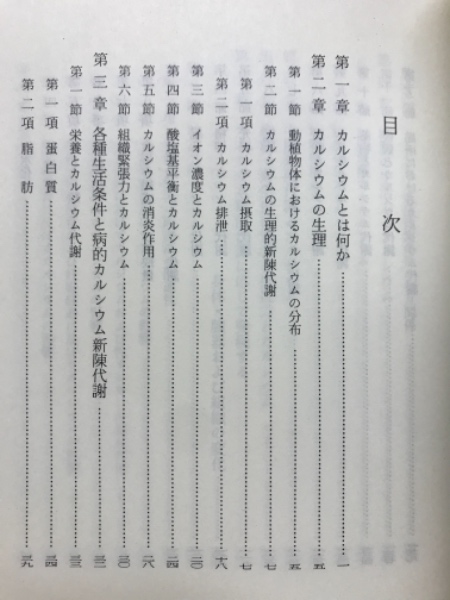 目次
第一章 カルシウムとは何か……一
第二章 カルシウムの生理……一五
第一節 動植物体におけるカルシウムの分布……一五
第二節 カルシウムの生理的新陳代謝……一七
第一項 カルシウム摂取……一七
第二項 カルシウム排泄……一八
第三節 イオン濃度とカルシウム……二〇
第四節 酸塩基平衡とカルシウム……二四
第五節 カルシウムの消炎作用……二八
第六節 組織緊張力とカルシウム……三〇
第三章 各種生活条件と病的カルシウム新陳代謝……三二
第一節 栄養とカルシウム代謝……三三
第一項 蛋白質……三四
第二項 脂肪……三九